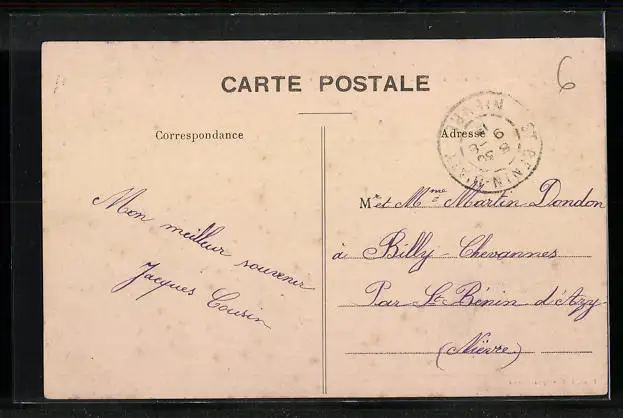 6
CARTE POSTALE
Correspondance
Adresse
Mon meilleur souvenir
Jacques Cousin
M. et Mme Martin Dondon
à Billy-Chevannes
Par St-Bénin d'Azy
(Nièvre)